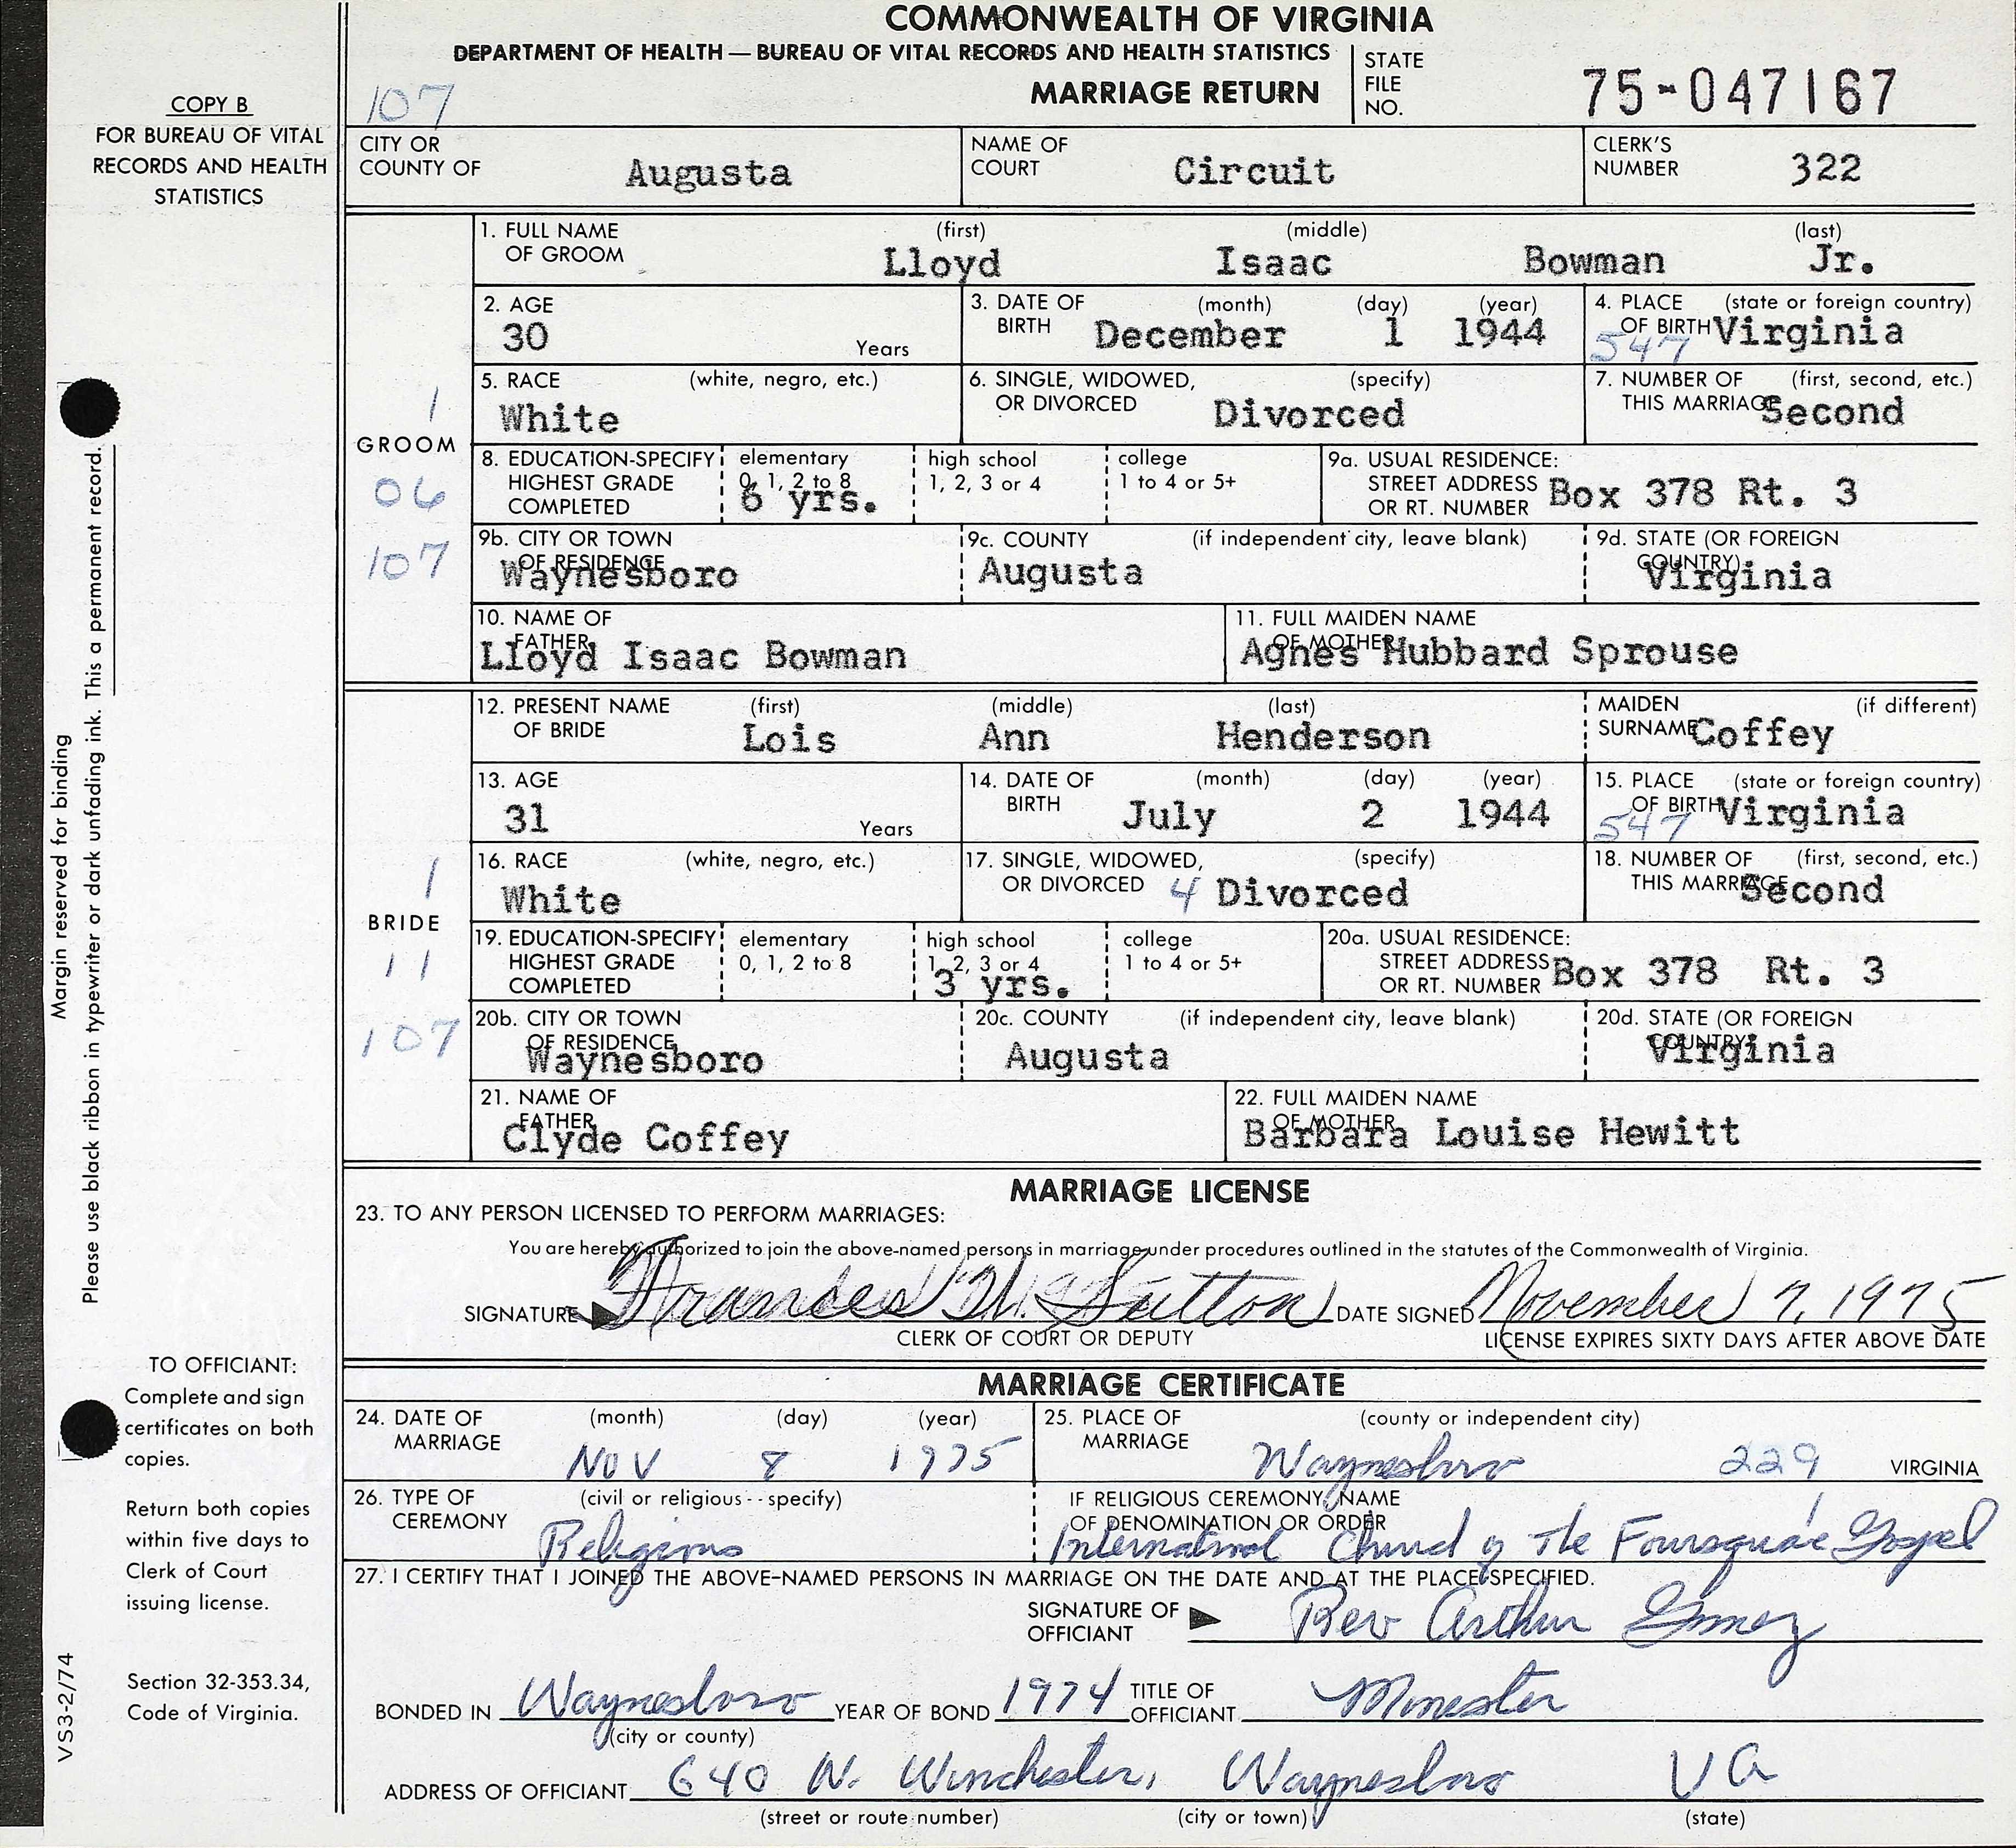 COMMONWEALTH OF VIRGINIA
DEPARTMENT OF HEALTH — BUREAU OF VITAL RECORDS AND HEALTH STATISTICS
MARRIAGE RETURN
STATE FILE NO. 75-047167
107
COPY B
FOR BUREAU OF VITAL
RECORDS AND HEALTH
STATISTICS
CITY OR COUNTY OF Augusta NAME OF COURT Circuit CLERK'S NUMBER 322
1. FULL NAME OF GROOM (first) Lloyd (middle) Isaac (last) Bowman Jr.
2. AGE 30 Years 3. DATE OF BIRTH (month) December (day) 1 (year) 1944 4. PLACE OF BIRTH (state or foreign country) 547 Virginia
1
GROOM
06
107
5. RACE (white, negro, etc.) White 6. SINGLE, WIDOWED, OR DIVORCED (specify) Divorced 7. NUMBER OF THIS MARRIAGE (first, second, etc.) Second
8. EDUCATION-SPECIFY HIGHEST GRADE COMPLETED elementary 0, 1, 2 to 8 6 yrs. high school 1, 2, 3 or 4 college 1 to 4 or 5+ 9a. USUAL RESIDENCE: STREET ADDRESS OR RT. NUMBER Box 378 Rt. 3
9b. CITY OR TOWN OF RESIDENCE Waynesboro 9c. COUNTY (if independent city, leave blank) Augusta 9d. STATE (OR FOREIGN COUNTRY) Virginia
10. NAME OF FATHER Lloyd Isaac Bowman 11. FULL MAIDEN NAME OF MOTHER Agnes Hubbard Sprouse
12. PRESENT NAME OF BRIDE (first) Lois (middle) Ann (last) Henderson MAIDEN SURNAME (if different) Coffey
13. AGE 31 Years 14. DATE OF BIRTH (month) July (day) 2 (year) 1944 15. PLACE OF BIRTH (state or foreign country) 547 Virginia
1
BRIDE
11
107
16. RACE (white, negro, etc.) White 17. SINGLE, WIDOWED, OR DIVORCED (specify) 4 Divorced 18. NUMBER OF THIS MARRIAGE (first, second, etc.) Second
19. EDUCATION-SPECIFY HIGHEST GRADE COMPLETED elementary 0, 1, 2 to 8 high school 1, 2, 3 or 4 3 yrs. college 1 to 4 or 5+ 20a. USUAL RESIDENCE: STREET ADDRESS OR RT. NUMBER Box 378 Rt. 3
20b. CITY OR TOWN OF RESIDENCE Waynesboro 20c. COUNTY (if independent city, leave blank) Augusta 20d. STATE (OR FOREIGN COUNTRY) Virginia
21. NAME OF FATHER Clyde Coffey 22. FULL MAIDEN NAME OF MOTHER Barbara Louise Hewitt
MARRIAGE LICENSE
23. TO ANY PERSON LICENSED TO PERFORM MARRIAGES:
You are hereby authorized to join the above-named persons in marriage under procedures outlined in the statutes of the Commonwealth of Virginia.
SIGNATURE Frances W. Sutton DATE SIGNED November 7, 1975
CLERK OF COURT OR DEPUTY LICENSE EXPIRES SIXTY DAYS AFTER ABOVE DATE
MARRIAGE CERTIFICATE
24. DATE OF MARRIAGE (month) NOV (day) 8 (year) 1975 25. PLACE OF MARRIAGE (county or independent city) Waynesboro 229 VIRGINIA
26. TYPE OF CEREMONY (civil or religious--specify) Religious IF RELIGIOUS CEREMONY, NAME OF DENOMINATION OR ORDER International Church of The Foursquare Gospel
27. I CERTIFY THAT I JOINED THE ABOVE-NAMED PERSONS IN MARRIAGE ON THE DATE AND AT THE PLACE SPECIFIED.
SIGNATURE OF OFFICIANT Rev Arthur
BONDED IN Waynesboro YEAR OF BOND 1974 TITLE OF OFFICIANT Minester
(city or county)
ADDRESS OF OFFICIANT 640 N. Winchester, Waynesboro VA
(street or route number) (city or town) (state)
Margin reserved for binding
Please use black ribbon in typewriter or dark unfading ink. This a permanent record.
TO OFFICIANT:
Complete and sign
certificates on both
copies.
Return both copies
within five days to
Clerk of Court
issuing license.
Section 32-353.34,
Code of Virginia.
VS3-2/74